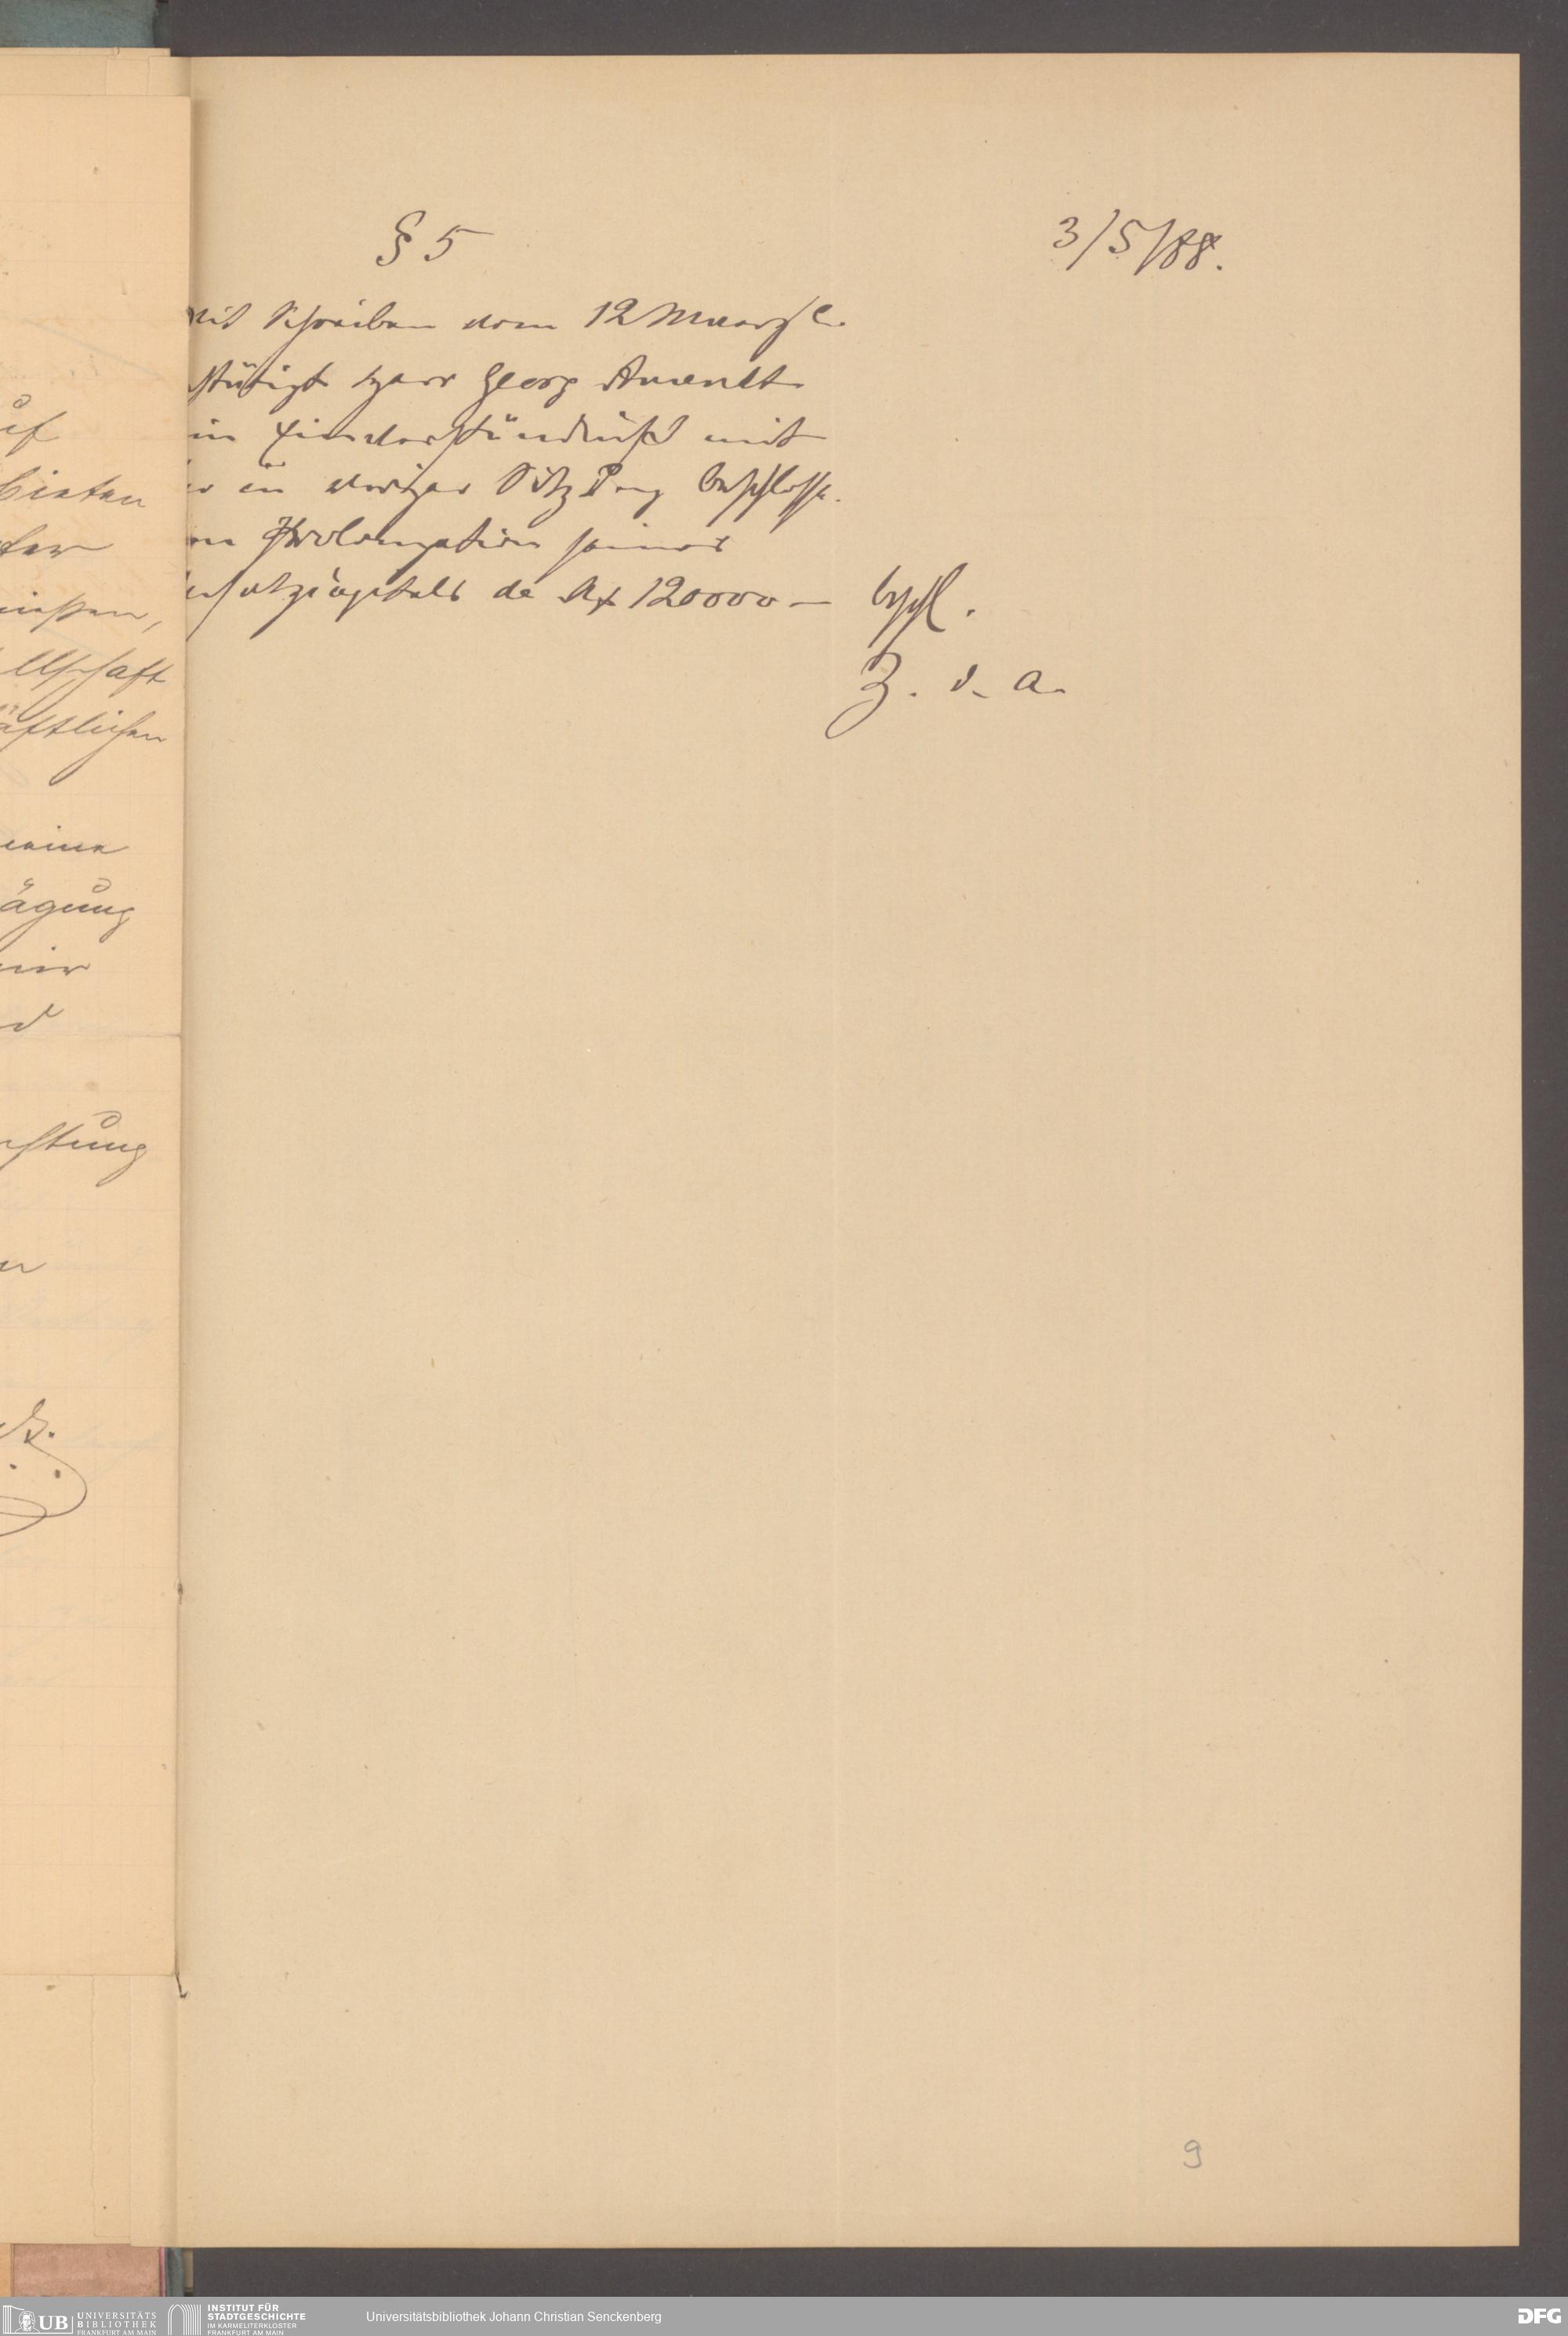 § 5
3/5/88.
mit Schreiben vom 12 Maerz c.
stätigt Herr Georg Amendt
in Einverständniß mit
er in voriger Sitzung beschlosse.
en Prolongation seines
nsatzcapitals de M 120000 –
bschl.
Z. d. A.
uf
bieten
ter
ießen,
llschaft
äftlichen
meine
ägung
mir
d
chtung
n
9
UB UNIVERSITÄTS
BIBLIOTHEK
FRANKFURT AM MAIN
INSTITUT FÜR
STADTGESCHICHTE
IM KARMELITERKLOSTER
FRANKFURT AM MAIN
Universitätsbibliothek Johann Christian Senckenberg
DFG